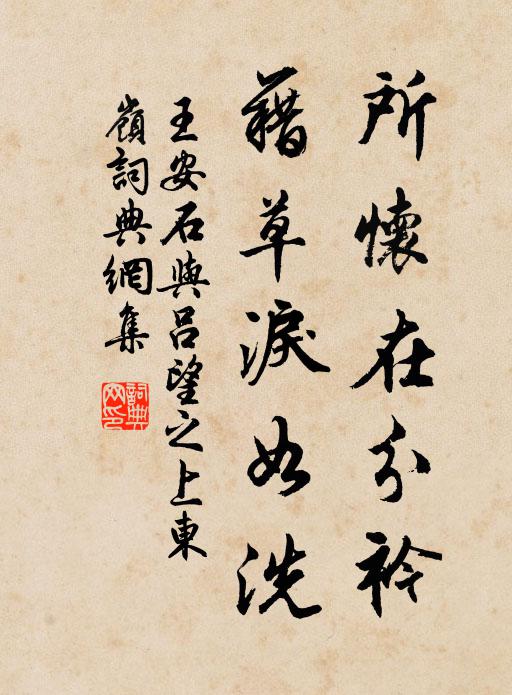 所懷在分衿
藉草淚如洗
王安石與呂望之上東
嶺詞典網集
詞典网印